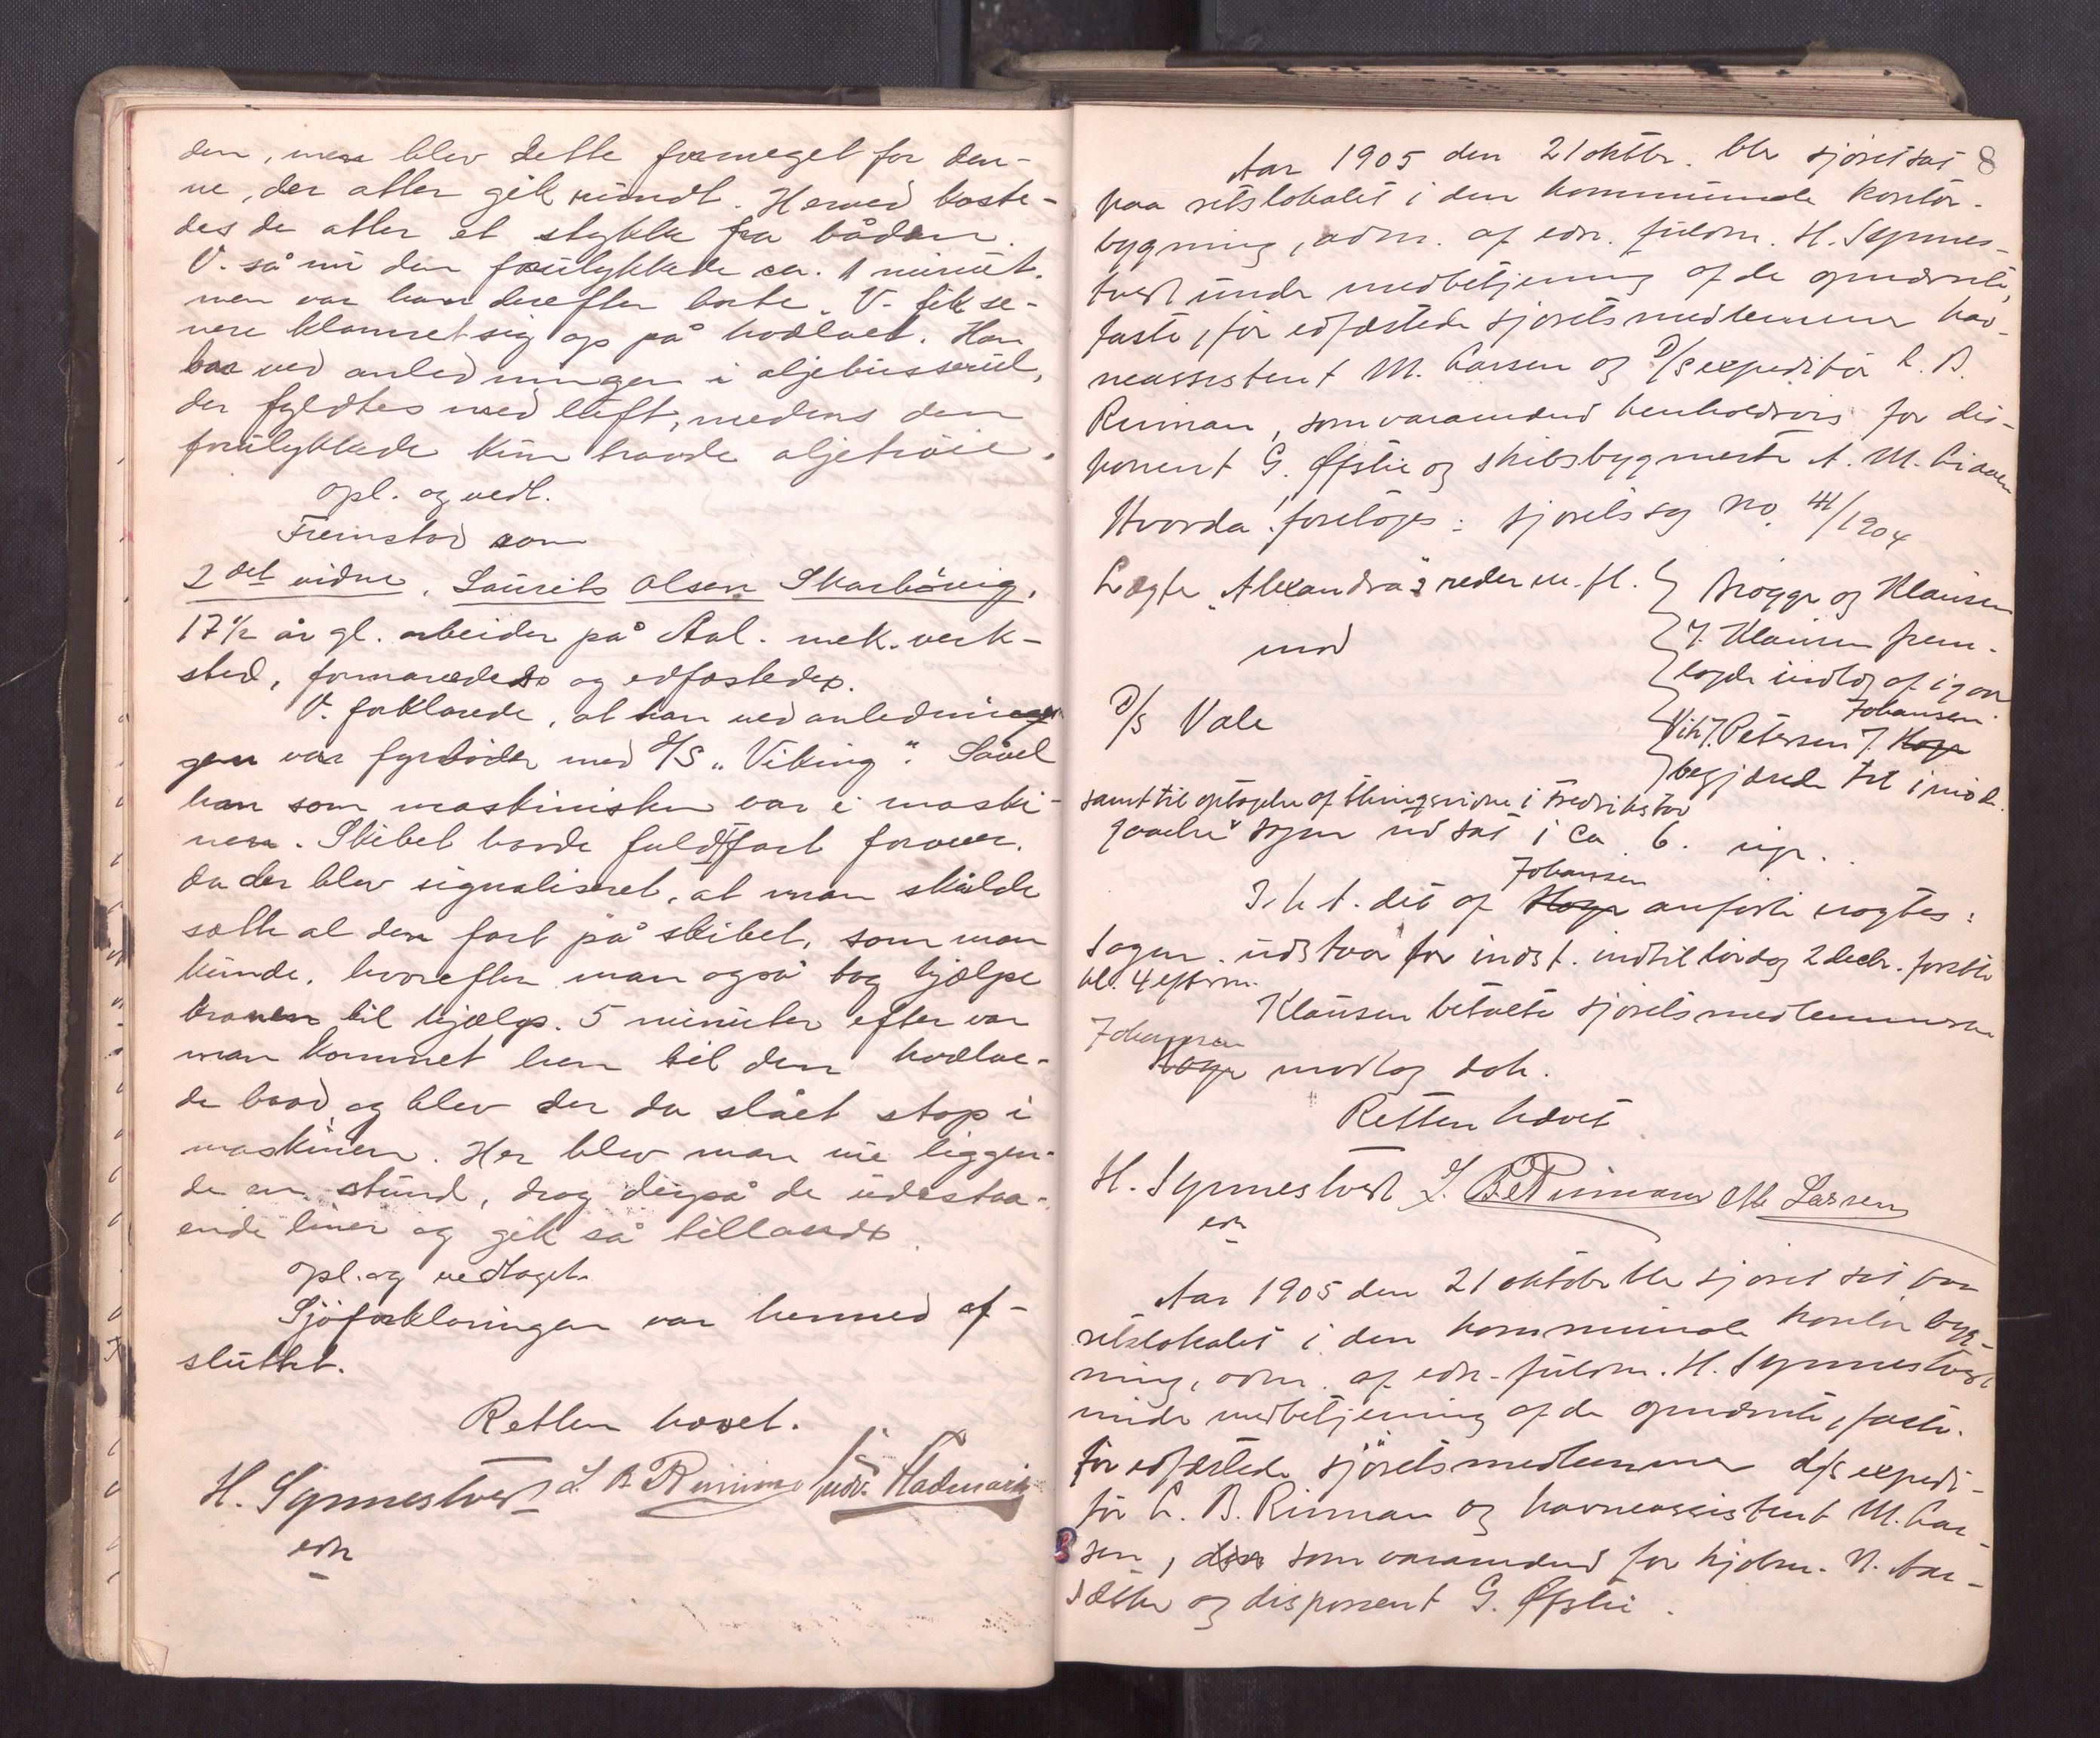 den, men blev dette formeget for den-
ne, der atter gik rundt. Herved kaste-
des de atter et stykke fra båden.
V. så nu den forulykkede ca. 1 minut,
men var han derefter borte. V. fik se-
nere klamret sig op på hvælvet. Han
bar ved anledningen i oljebusserul,
der fyldtes med luft, medens den
forulykkede kun havde oljetröie.
opl. og vedt.
Fremstod som
2det vidne, Laurits Olsen Skarbövig,
17½ år gl. arbeider på Aal. mek. verk-
sted, formanedes og edfæstedes.
V. forklarede, at han ved anlednin
gen var fyrböder med D/S „Viking“. Såvel
han som maskinisten var i maski-
nen. Skibet havde fuld fart forover,
da der blev signaliseret, at man skulde
sætte al den fart på skibet, som man
kunde, hvorefter man også tog hjælpe
kranen til hjælp. 5 minuter efter var
man kommet hen til den hvælve-
de baad og blev der da slået stop i
maskinen. Her blev man nu liggen-
de en stund, drog derpå de udestaa-
ende liner og gik så tillands.
opl. og vedtaget.
Sjöforklaringen var hermed af-
sluttet.
Retten hævet.
H. Synnestvedt L. B. Riiman
edr
8
Aar 1905 den 21 oktbr. blev sjöret sat
paa retslokalet i den kommunale kontor-
bygning, adm. af edsv. fuldm. H. Synnes-
tvedt under medbetjening af de opnævnte,
faste, för edfæstede sjöretsmedlemmer hav-
neassistent M. Larsen og D/S expeditör L. B.
Riiman, som varamænd henholdsvis for dis-
ponent G. Øfstie og skibsbygmester A. M. Liaaen
Hvorda foretoges: sjöretssag no. 41/1904
Lægter „Alexandra“s reder m. fl. } Brogge og Klausen
mod } J. Klausen frem-
} lagde indlæg af igaar
D/S Vale } Vik J. Petersen J. Johansen
} begjærede til imöde-
samt til optagelse af thingsvidne i Fredrikstad
gaaelse sagen udsat i ca 6. uger.
I. h. t. det af Johansen anförte eragtes:
Sagen udstaar for indst. indtil lördag 2 decbr. förstk.
kl. 4 efterm.
Klausen betalte sjöretsmedlemmerne
Johansen modtog dok.
Retten hævet
H. Synnestvedt L. B. Riiman M. Larsen
edr
Aar 1905 den 21 oktober blev sjöret sat paa
retslokalet i den kommunale kontorbyg-
ning, adm. af edsv. fuldm. H. Synnestvedt
under medbetjening af de opnævnte, faste,
för edfæstede sjöretsmedlemmer d/s expedi-
tör L. B. Riiman og havneassistent M. Lar-
sen, som varamænd for hjelm. N. Aar-
sæther og disponent G. Øfstie.